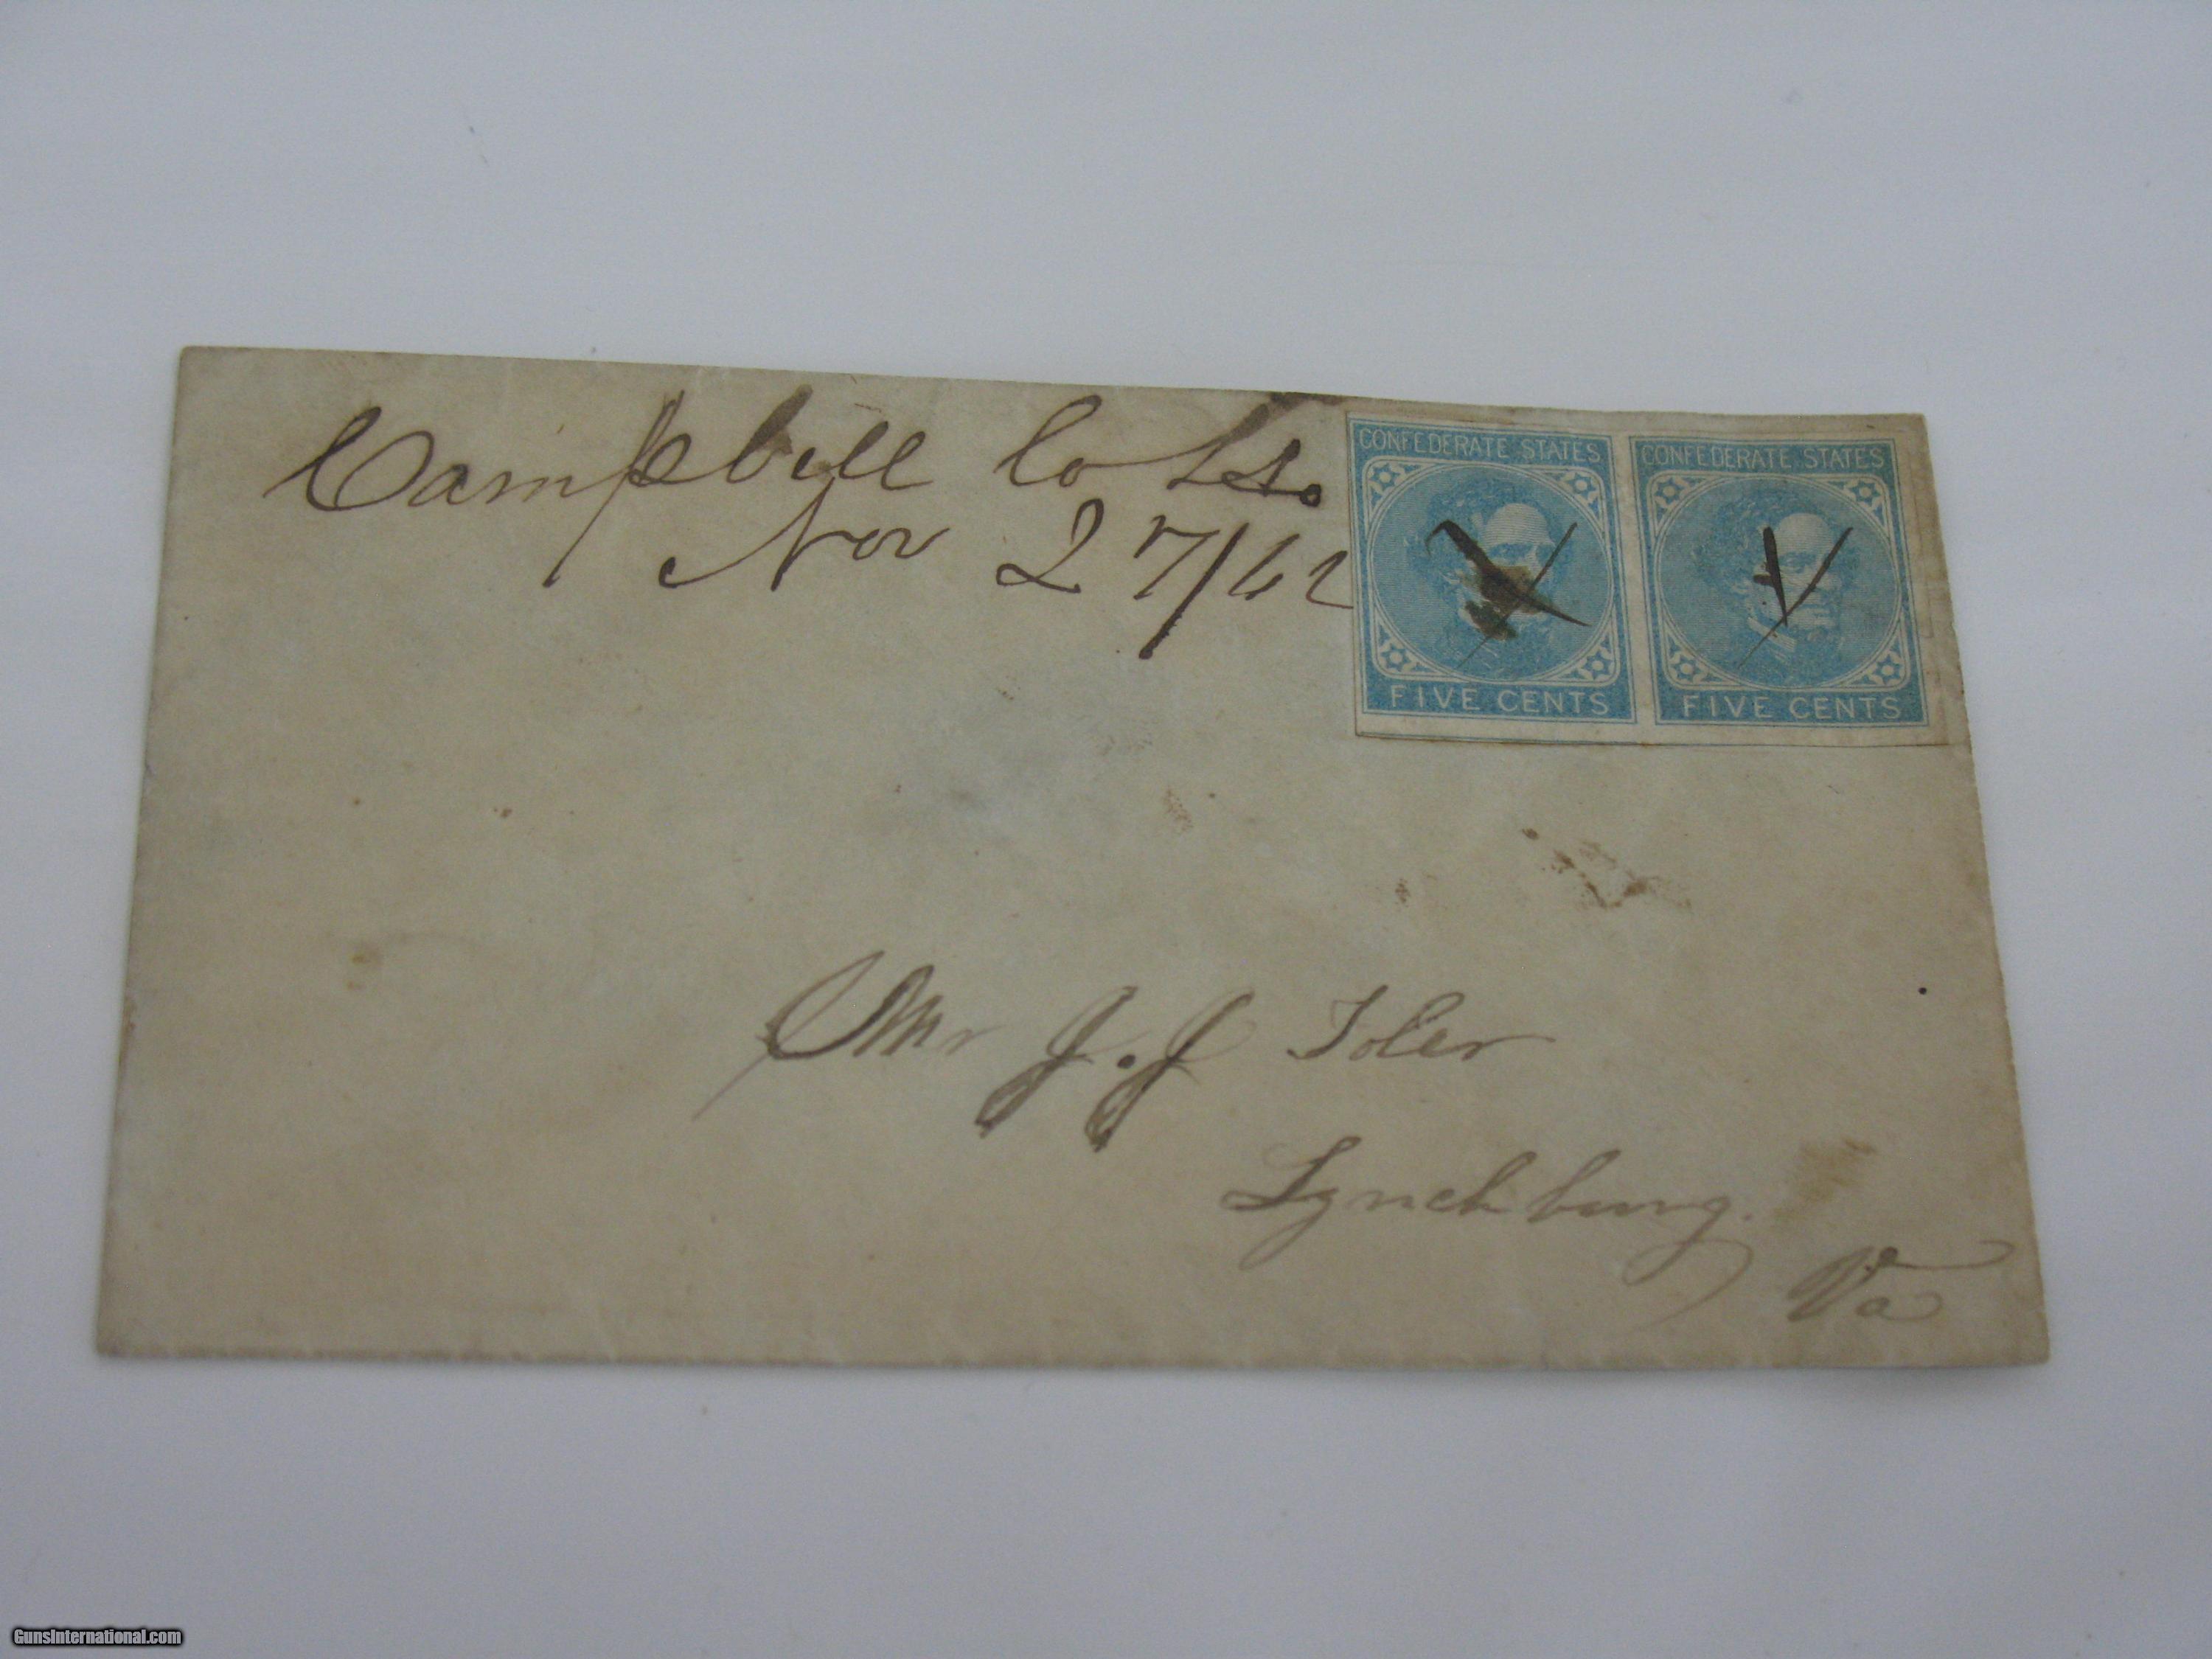 Campbell Co
Nov 27/62
CONFEDERATE STATES
FIVE CENTS
CONFEDERATE STATES
FIVE CENTS
Mr J. J Toler
Lynchburg.
Va
GunsInternational.com